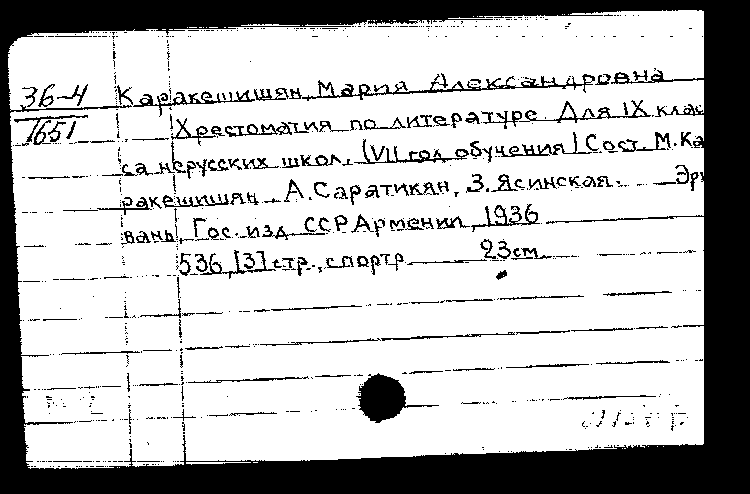 36-4
1651
Каракешишян, Мария Александровна
Хрестоматия по литературе. Для IX клас
са нерусских школ. (VII год обучения) Сост. М.Ка
ракешишян, А.Саратикян, З.Ясинская. Эри
вань, Гос. изд. ССР Армении, 1936
536, [3] стр., с портр. 23см.